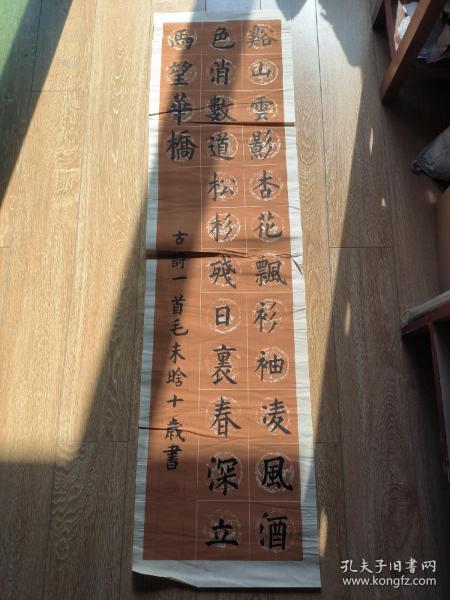 谿山雲影杏花飄衫袖凌風酒
色消數道松杉殘日裏春深立
馬望華橋
古詩一首毛未晗十歲書
孔夫子旧书网
www.kongfz.com